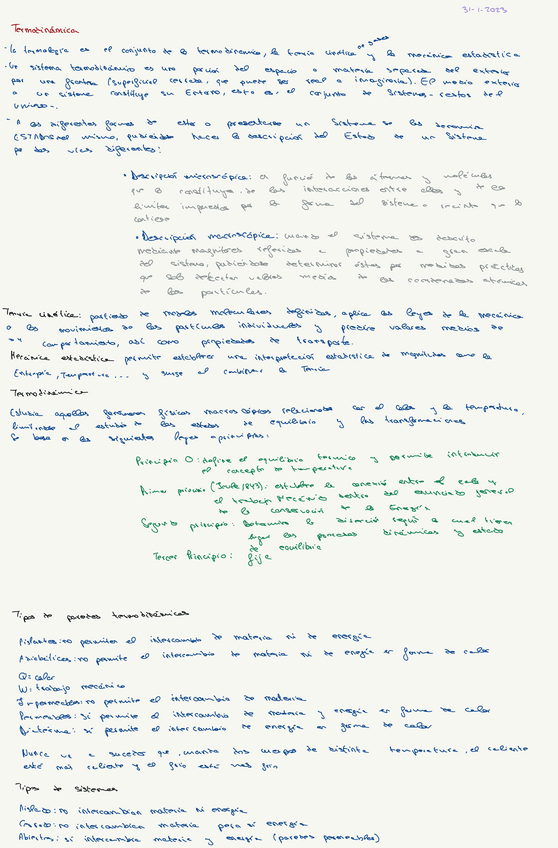 31-1-2023
Termodinámica
- La termología es el conjunto de la termodinámica, la teoría cinética de gases y la mecánica estadística
- Un sistema termodinámico es una porción del espacio o materia separada del exterior
por una frontera (superficie cerrada, que puede ser real o imaginaria). El medio exterior
a un sistema constituye su Entorno, esto es, el conjunto de sistemas restos del
universo.
- A las diferentes formas de estar o presentarse un Sistema se las denomina
ESTADOS del mismo, pudiendo hacer la descripción del Estado de un Sistema
por dos vías diferentes:
• Descripción microscópica: en función de los átomos y moléculas
que lo constituyen, de las interacciones entre ellos y de los
límites impuestos por la forma del sistema o recinto que lo
contiene
• Descripción macroscópica: cuando el sistema es descrito
mediante magnitudes referidas a propiedades a gran escala
del sistema, pudiéndose determinar éstas por medidas prácticas
que solo detectan valores medios de las coordenadas atómicas
de las partículas.
Teoría cinética: partiendo de modelos moleculares definidos, aplica las leyes de la mecánica
a los movimientos de las partículas individuales y predice valores medios de
su comportamiento, así como propiedades de transporte.
Mecánica estadística permite establecer una interpretación estadística de magnitudes como la
Entropía, Temperatura ... y surge al combinar la Teoría
Termodinámica
Estudia aquellos fenómenos físicos macroscópicos relacionados con el calor y la temperatura,
limitando el estudio de los estados de equilibrio y las transformaciones
Se basa en las siguientes leyes o principios:
Principio 0: define el equilibrio térmico y permite introducir
el concepto de temperatura
Primer principio (Joule, 1843): establece la conexión entre el calor y
el trabajo mecánico dentro del enunciado general
de la conservación de la Energía
Segundo principio: Determina la dirección según la cual tienen
lugar los procesos dinámicos y estado
de equilibrio
Tercer Principio: fija
Tipos de paredes termodinámicas
Aislantes: no permiten el intercambio de materia ni de energía
Adiabáticas: no permite el intercambio de materia ni de energía en forma de calor
Q: calor
W: trabajo mecánico
Impermeables: no permite el intercambio de materia
Permeables: sí permite el intercambio de materia y energía en forma de calor
Diatérmica: sí permite el intercambio de energía en forma de calor
Nunca va a suceder que, cuando dos cuerpos de distinta temperatura, el caliente
esté más caliente y el frío esté más frío
Tipos de sistemas
Aislado: no intercambian materia ni energía
Cerrado: no intercambian materia pero sí energía
Abiertos: sí intercambia materia y energía (paredes permeables)